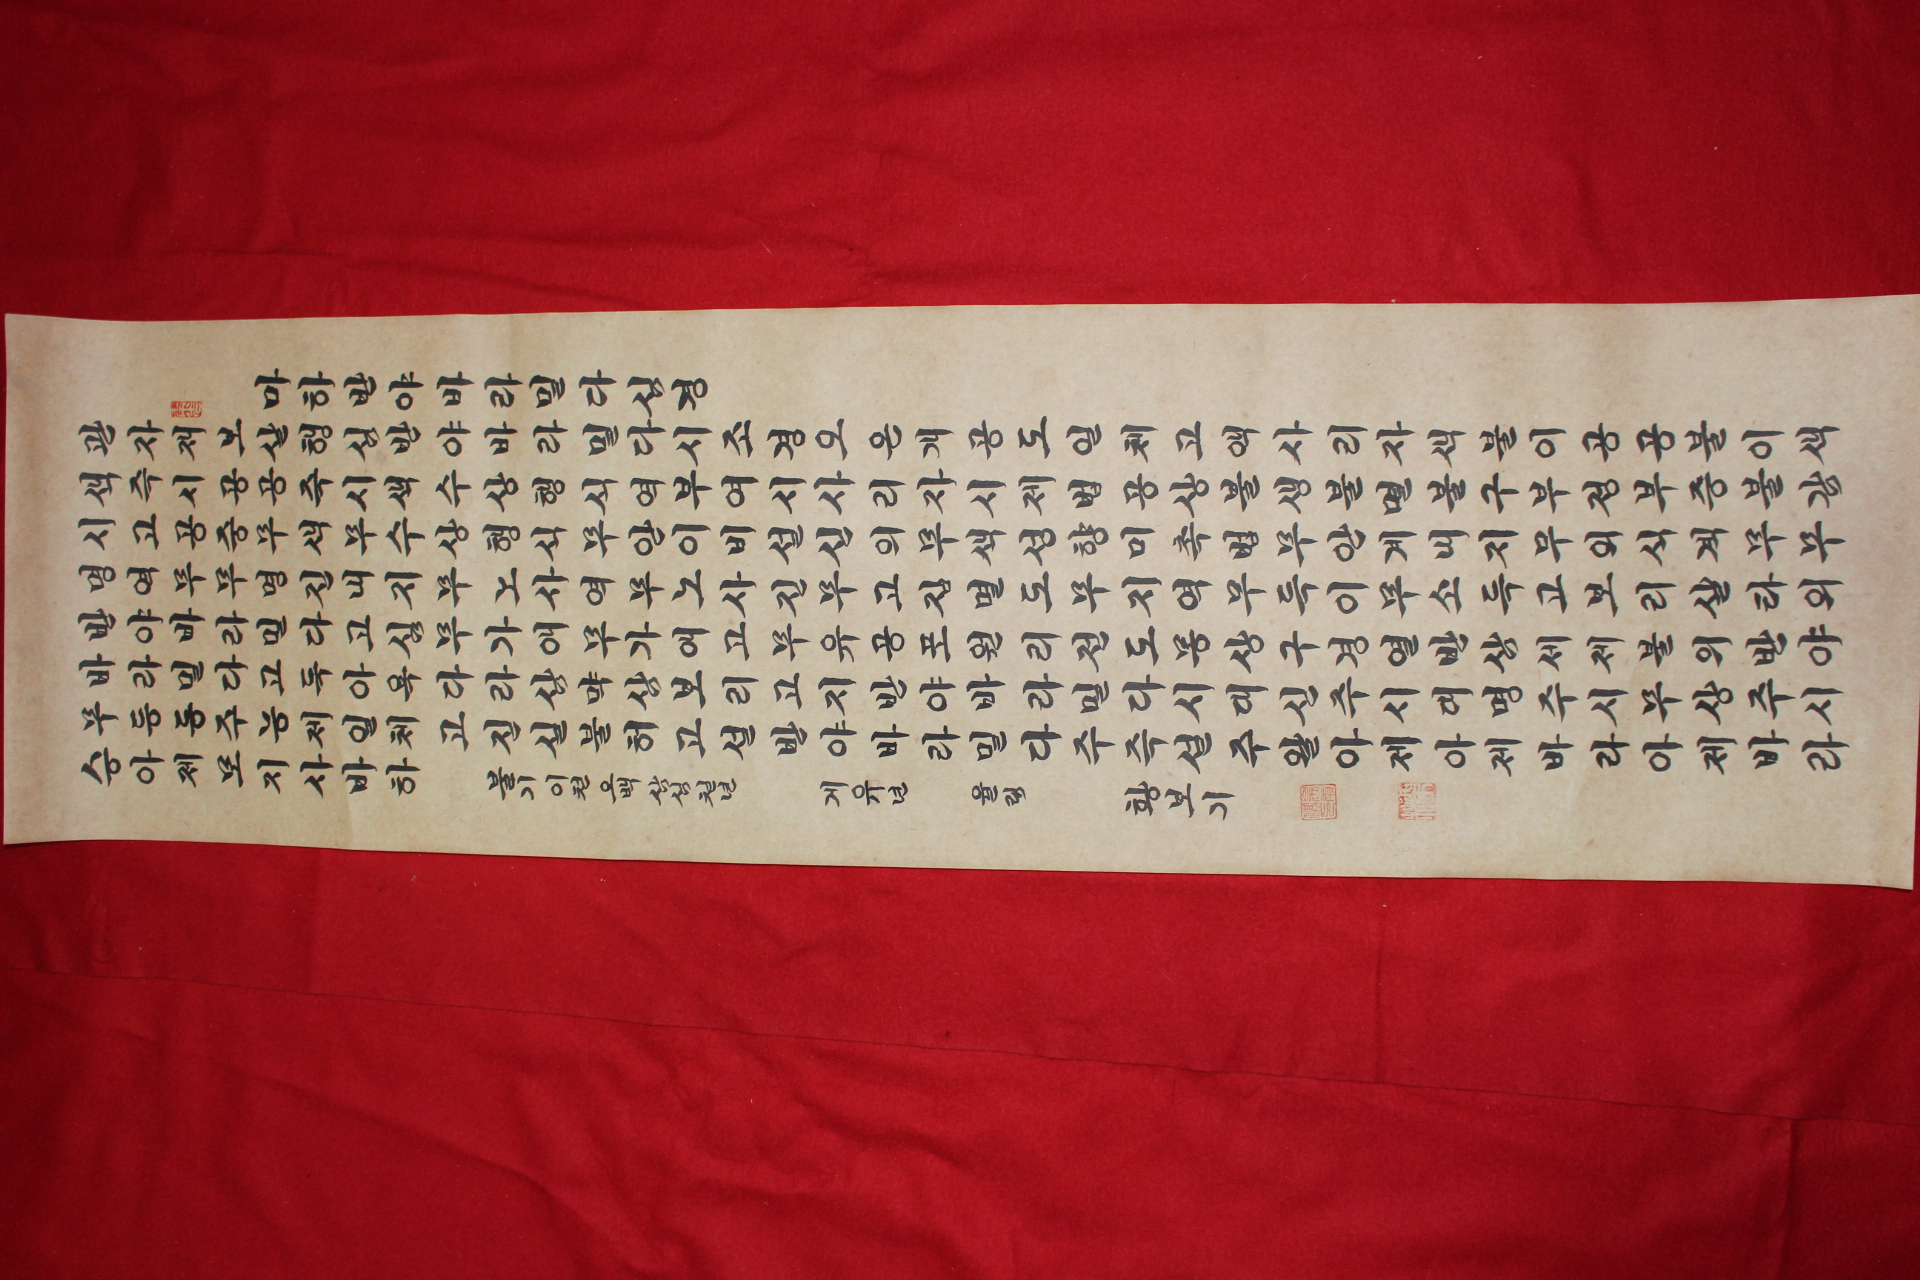 마하반야바라밀다심경
관자재보살행심반야바라밀다시조경오온개공도일체고액사리자색불이공공불이색
색즉시공공즉시색수상행식역부여시사리자시제법공상불생불멸불구부정부증불감
시고공중무색무수상행식무안이비설신의무색성향미촉법무안계내지무의식계무무
명역무무명진내지무노사역무노사진무고집멸도무지역무득이무소득고보리살타의
반야바라밀다고심무가애무가애고무유공포원리전도몽상구경열반삼세제불의반야
바라밀다고득아욕다라삼먁삼보리고지반야바라밀다시대신주시대명주시무상주시
무등등주능제일체고진실불허고설반야바라밀다주즉설주왈아제아제바라아제바라
승아제모지사바하
불기이천오백삼십칠년 계유년 율림 황보기